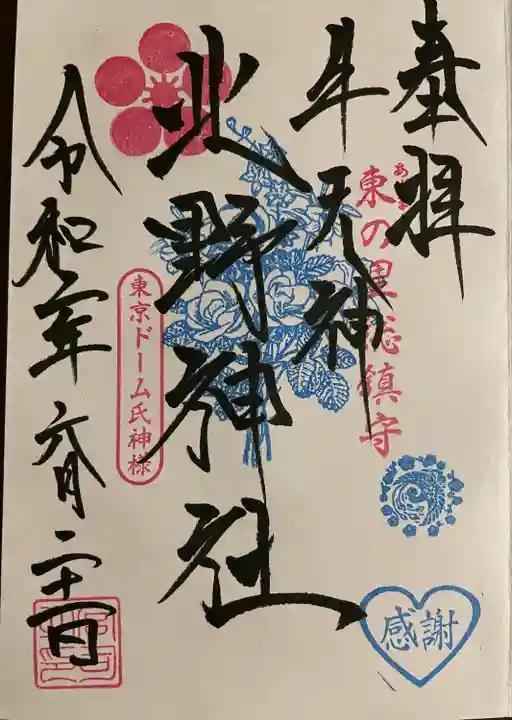 奉拝
あづま
東の里総鎮守
感謝
牛天神
北野神社
東京ドーム氏神様
令和六年六月二十一日